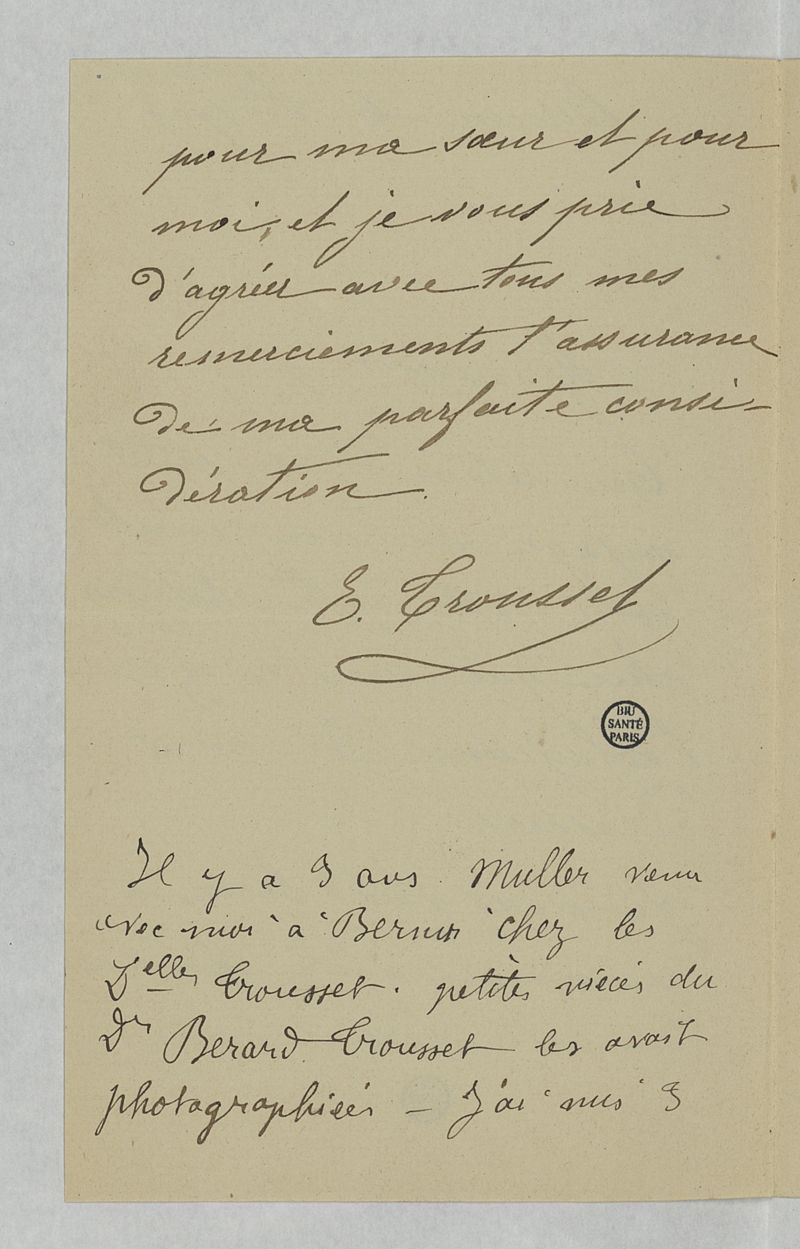 pour ma sœur et pour
moi, et je vous prie
d'agréer avec tous mes
remerciements l'assurance
de ma parfaite consi-
dération.
E. Trousset
BIU
SANTÉ
PARIS
Il y a 3 ans Muller venu
avec moi à Bernin chez les
Delles Trousset. petites nièces du
Dr Berard Trousset les avait
photographiées – J'ai mis 3